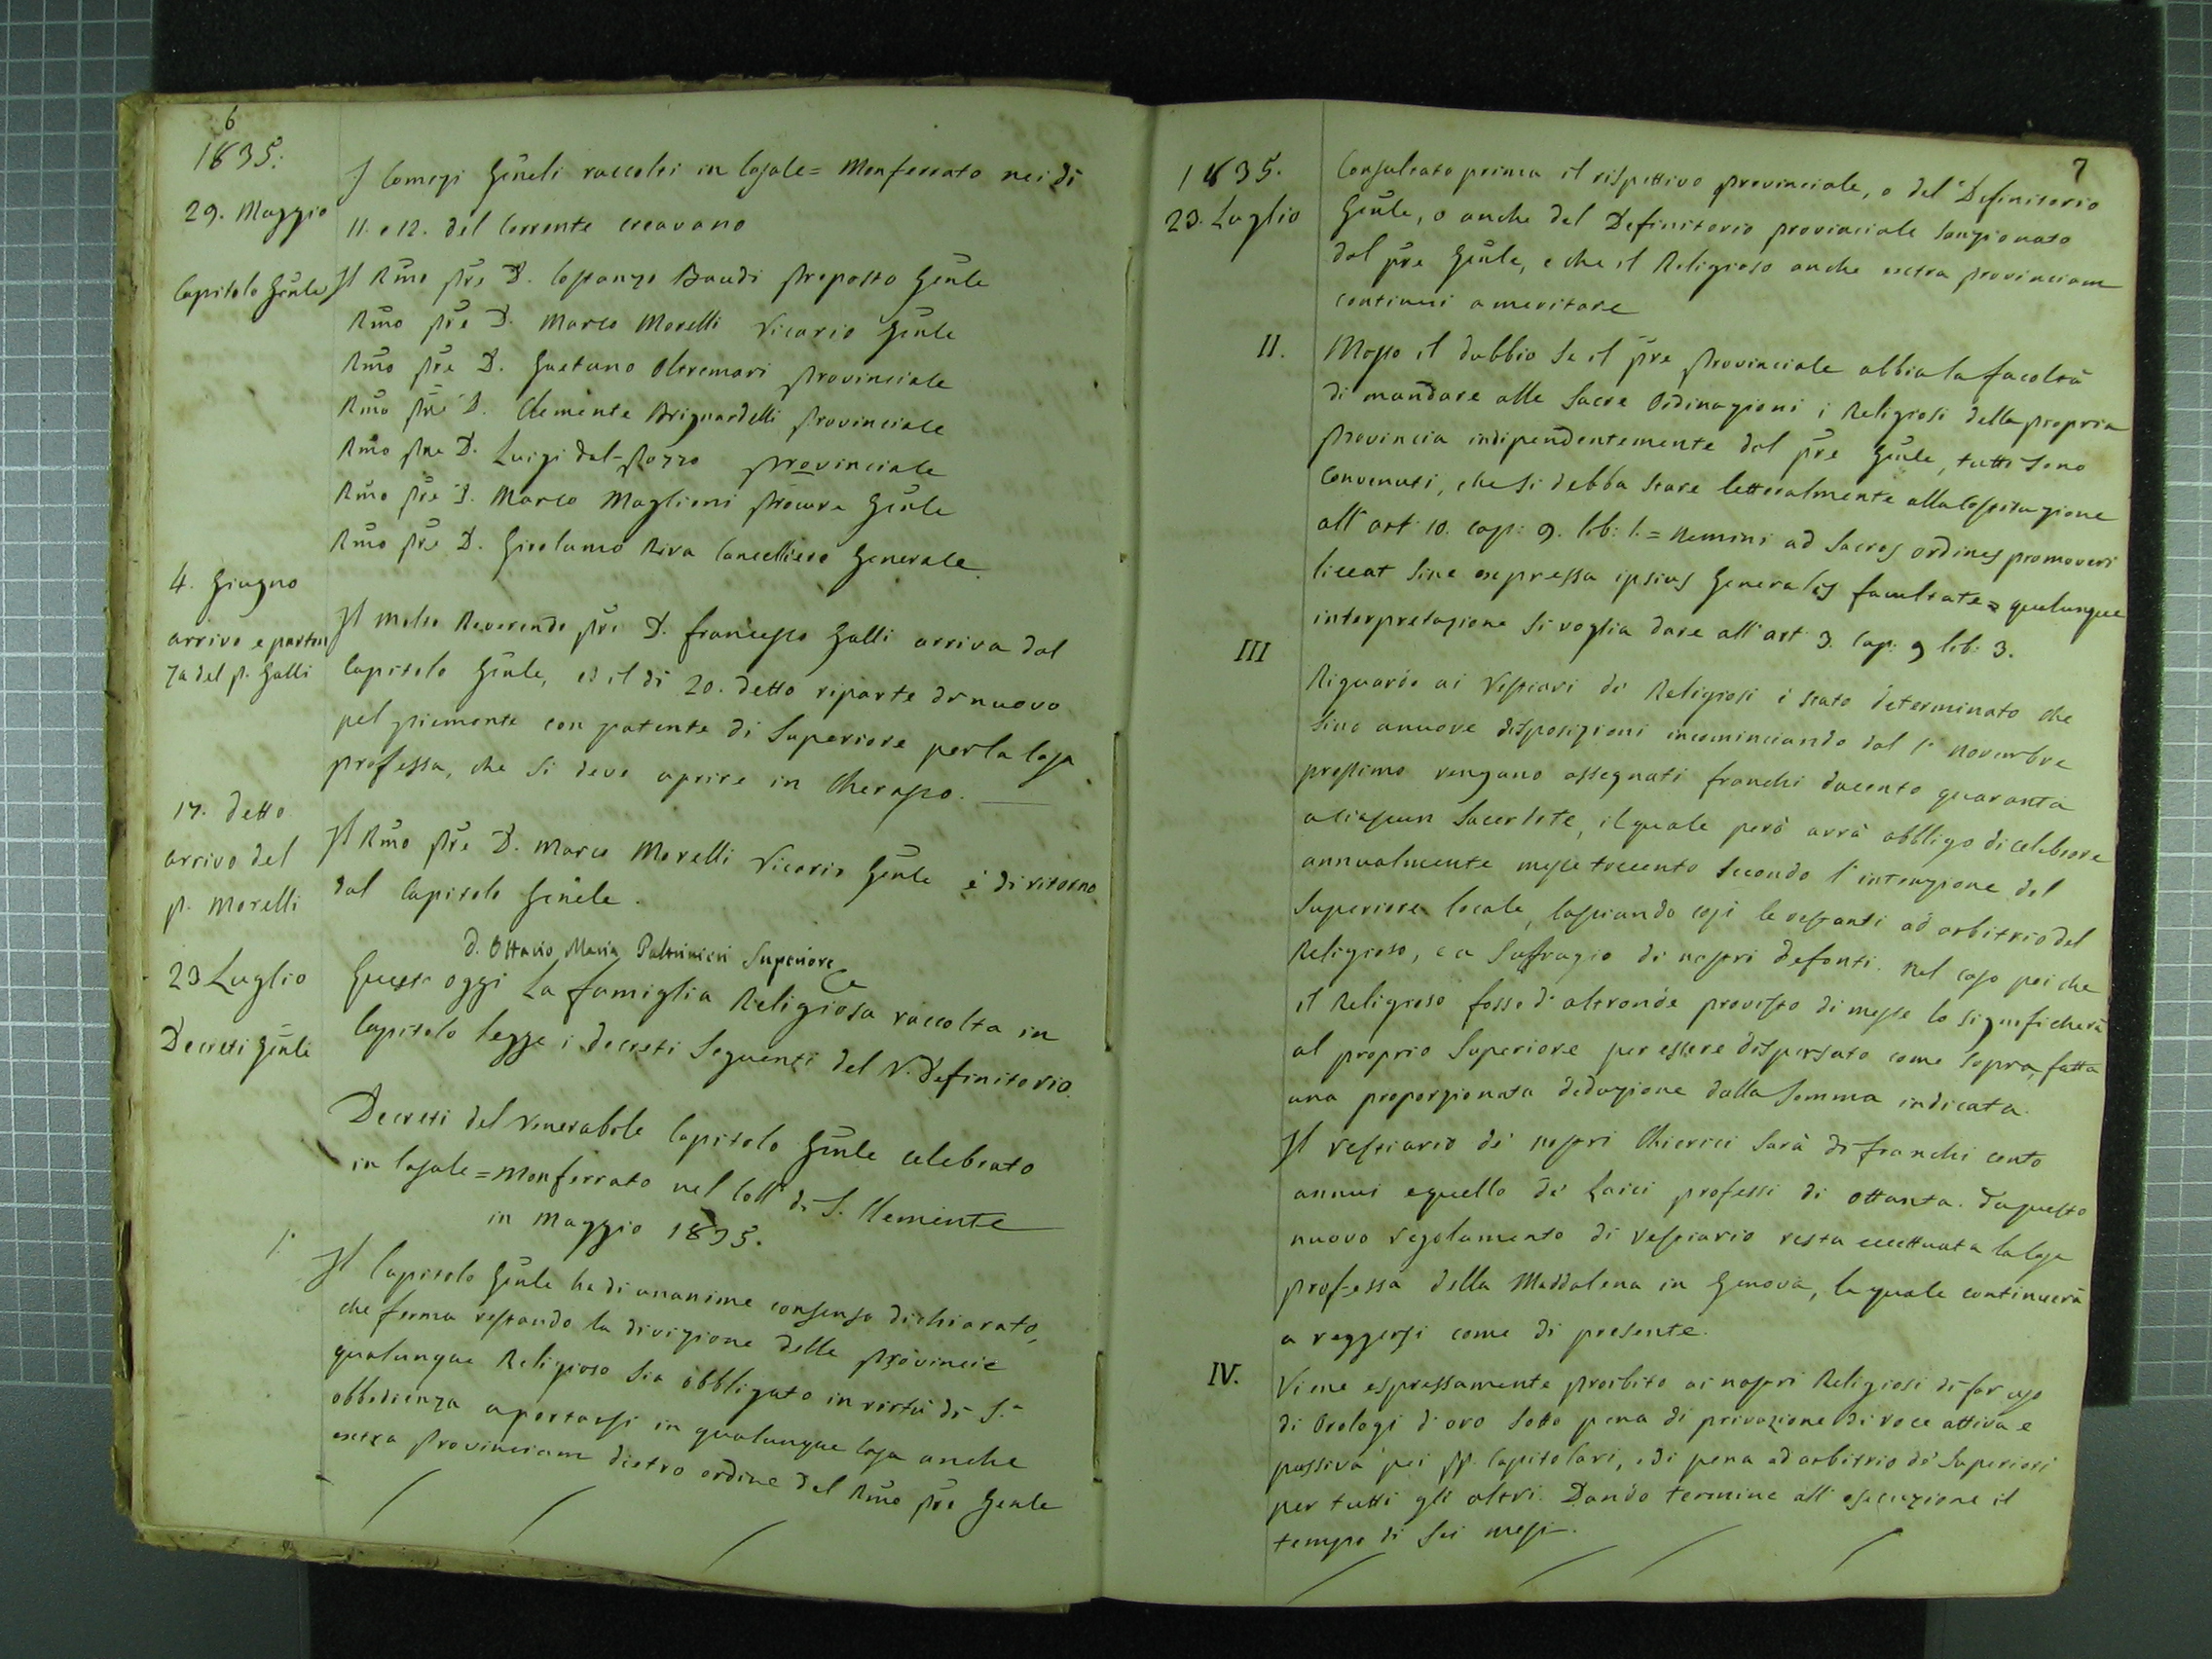 6
1835.
29. Maggio
I Comizi Gēneli raccolti in Casale = Monferrato nei dì
11. e 12. del Corrente creavano
Capitolo Gēnle
Il Rm̄o Prē D. Costanzo Baudi Preposto Gēnle
Rm̄o Prē D. Marco Morelli Vicario Gēnle
Rm̄o Prē D. Gaetano Oltremari Provinciale
Rm̄o Prē D. Clemente Brignardelli Provinciale
Rm̄o Prē D. Luigi dal-Pozzo Provinciale
Rm̄o Prē D. Marco Maglioni Procure Gēnle
Rm̄o Prē D. Girolamo Riva Cancelliere Generale
4. Giugno
arrivo e parten
za del P. Galli
Il Molto Reverendo Prē D. Francesco Galli arriva dal
Capitolo Gēnle, ed il dì 20. detto riparte di nuovo
pel Piemonte con patente di Superiore per la Casa
professa, che si deve aprire in Cherasco.
17. detto
arrivo del
P. Morelli
Il Rm̄o Prē D. Marco Morelli Vicario Gēnle è di ritorno
dal Capitolo Genēle.
D. Ottavio Maria Paltrinieri Superiore
23 Luglio
Decreti Gēnli
Quest' oggi La famiglia Religiosa raccolta in
Capitolo legge i decreti Seguenti del V. Definitorio.
Decreti del Venerabile Capitolo Gēnle celebrato
in Casale = Monferrato nel Coll° di S. Clemente
in Maggio 1835.
1.°
Il Capitolo Gēnle ha di unanime consenso dichiarato,
che ferma restando la divizione delle Provincie
qualunque Religioso sia obbligato in virtù di S.ª
obbedienza a portarsi in qualunque Casa anche
extra Provinciam dietro ordine del Rm̄o Prē Genle
7
1835.
23. Luglio
Consultato prima il rispettivo Provinciale, o del Definitorio
Gēnle, o anche del Definitorio provinciale Sanzionato
dal prē Gēnle, e che il Religioso anche extra Provinciam
continui a meritare
II.
Mosso il dubbio se il prē Provinciale abbia la facoltà
di mandare alle Sacre Ordinazioni i Religiosi della propria
Provincia indipendentemente dal prē Gēnle, tutti sono
Convenuti, che si debba stare letteralmente alla Costituzione
all' art: 10. cap: 9. lib: 1. = Nemini ad Sacros ordines promoveri
liceat sine expressa ipsius Generalis facultate = qualunque
interpretazione si voglia dare all' art 3. Cap: 9 lib: 3.
III
Riguardo ai Vestiari de' Religiosi è stato determinato che
sino a nuove disposizioni incominciando dal 1° Novembre
prossimo vengano assegnati franchi duecento quaranta
a ciascun Sacerdote, il quale però avrà obbligo di celebrare
annualmente messe trecento secondo l' intenzione del
Superiore locale, lasciando così le restanti ad arbitrio del
Religioso, e a Suffragio di nostri defonti. Nel caso poi che
il Religioso fosse d' altronde provisto di messe lo significherà
al proprio Superiore per essere dispensato come sopra, fatta
una proporzionata deduzione dalla Somma indicata.
Il vestiario de' nostri Chierici sarà di franchi cento
annui e quello de' Laici professi di ottanta. Da questo
nuovo regolamento di vestiario resta eccettuata la Casa
professa della Maddalena in Genova, la quale continuerà
a reggersi come di presente.
IV.
Viene espressamente proibito ai nostri Religiosi di far uso
di Orologi d' oro sotto pena di privazione di voce attiva e
passiva pei PP. Capitolari, e di pena ad arbitrio de' Superiori
per tutti gli altri. Dando termine all' esecuzione il
tempo di Sei mesi.